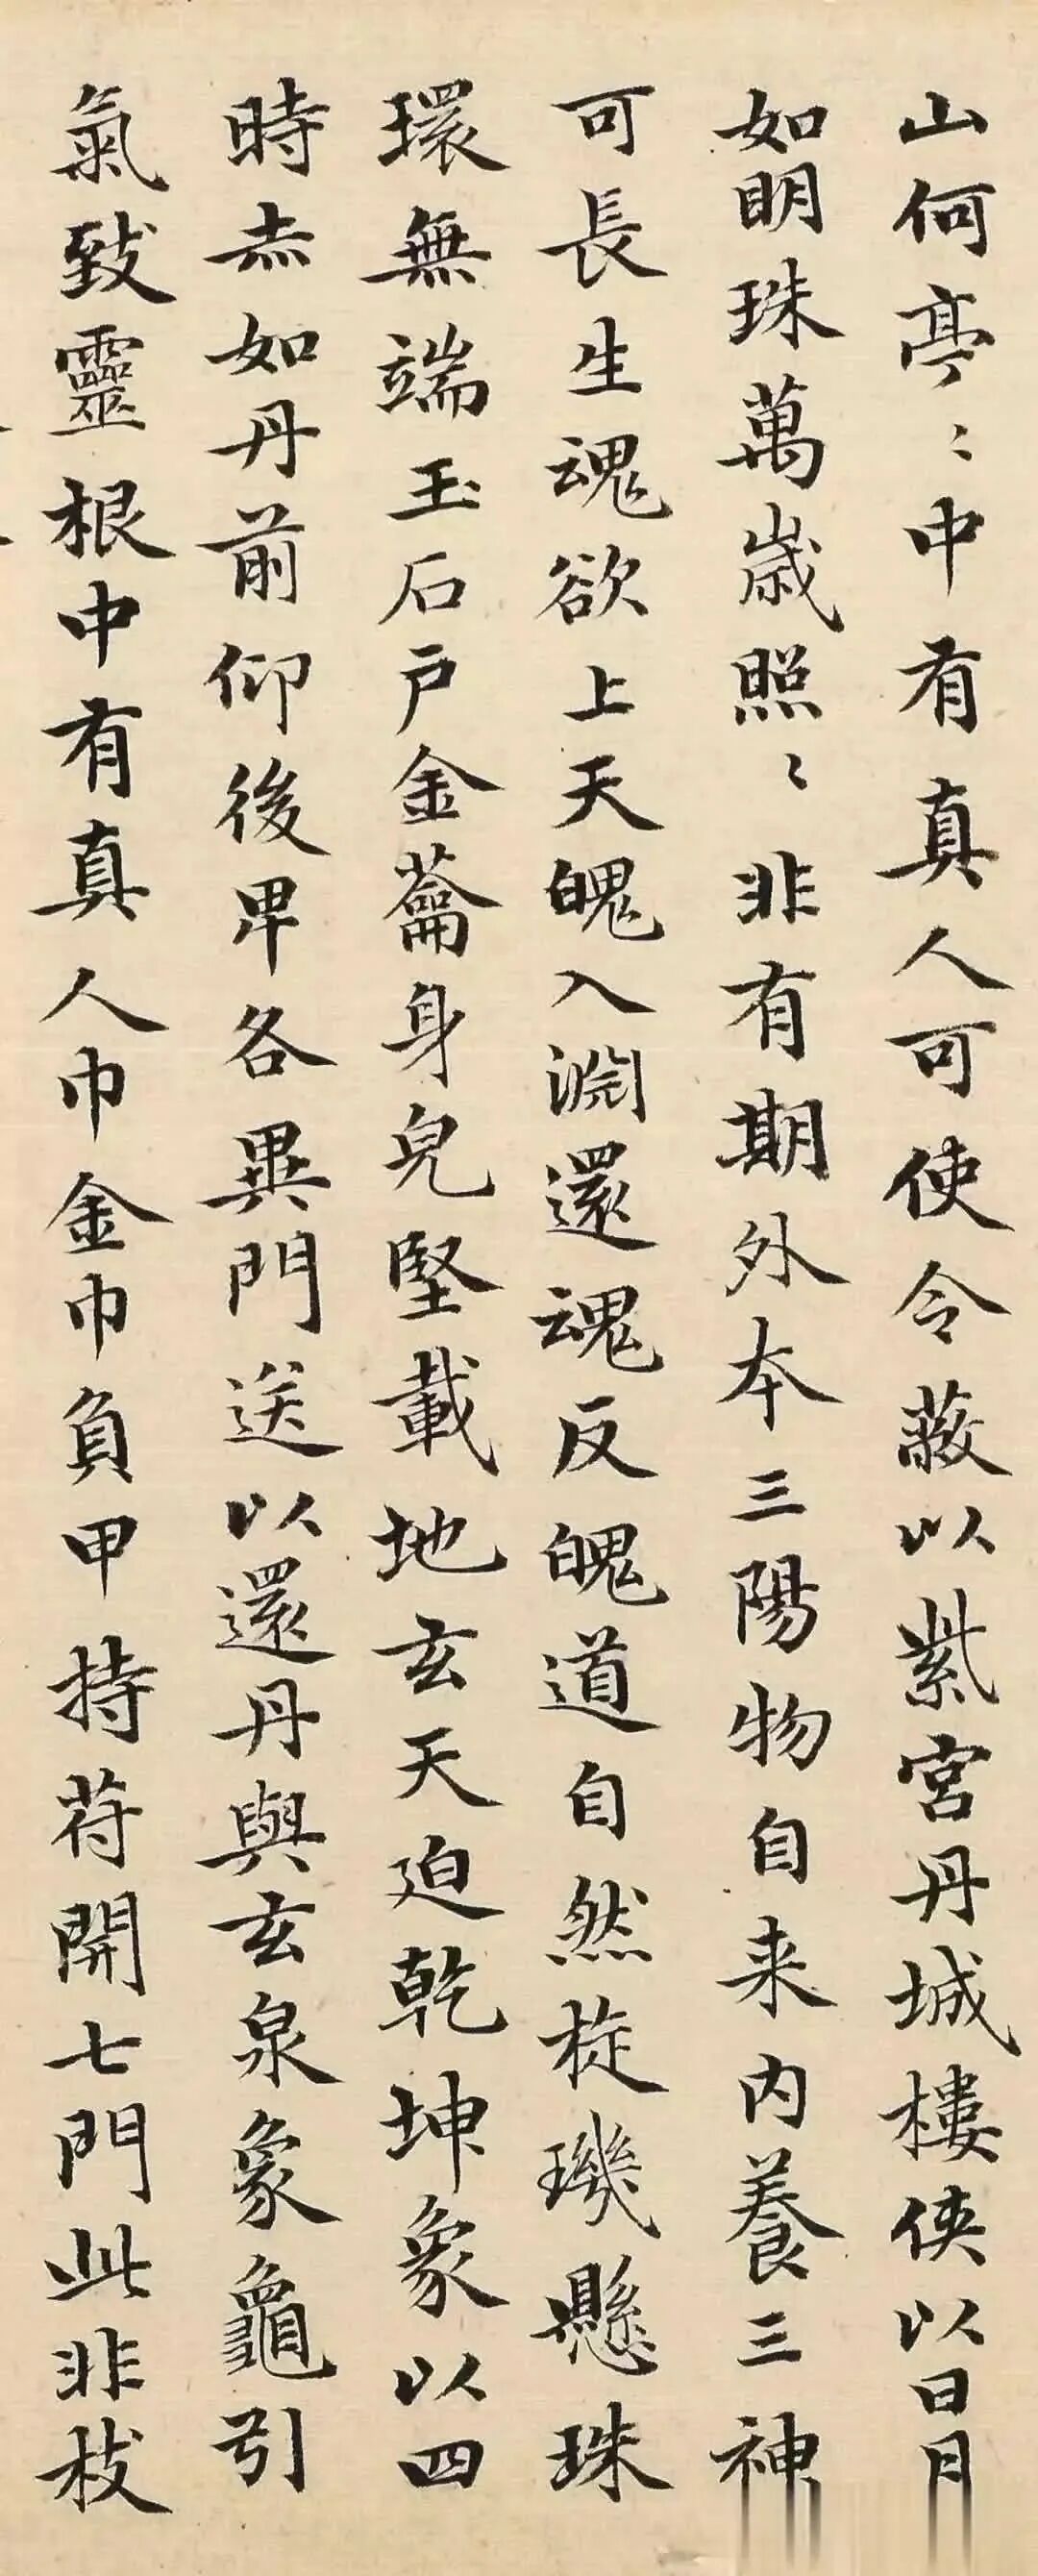 山何亭〻中有真人可使令蔽以紫宮丹城樓俠以日月
如明珠萬歲照〻非有期外本三陽物自来內養三神
可長生魂欲上天魄入淵還魂反魄道自然旋璣懸珠
環無端玉石戶金蘥身皃堅載地玄天迫乾坤象以四
時赤如丹前仰後卑各異門送以還丹與玄泉象龜引
氣致靈根中有真人巾金巾負甲持苻開七門此非枝